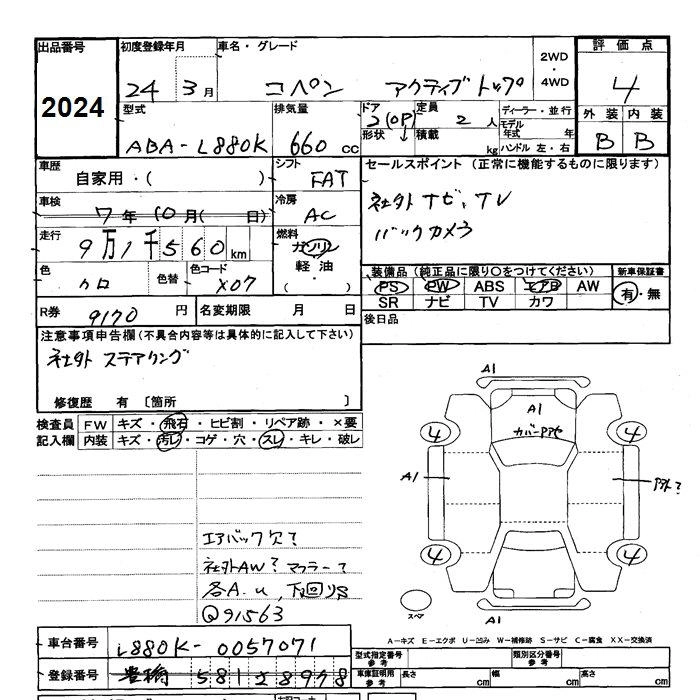 出品番号 初度登録年月 車名・グレード 評価点
2024 24 3月 コペン アクティブトップ 2WD・4WD 4
型式 排気量 ドア 定員 ディーラー・並行 外装 内装
ABA-L880K 660 cc 2(OP) 2人 モデル年式 年 B B
形状 積載 kg ハンドル 左・右
車歴 シフト セールスポイント (正常に機能するものに限ります)
自家用・( ) FAT 社外ナビ、TV
車検 冷房 バックカメラ
7年10月( 日) AC
走行 燃料
9万1千560km ガソリン
色 色替 色コード 軽油 装備品 (純正品に限り○をつけてください) 新車保証書
クロ X07 ・( ) PS PW ABS エアB AW 有・無
SR ナビ TV カワ
R券 9170円 名変期限 月 日 後日品
注意事項申告欄(不具合内容等は具体的に記入して下さい)
社外 ステアリング
修復歴 有 〔箇所 〕
検査員 FW キズ・飛石・ヒビ割・リペア跡・×要
記入欄 内装 キズ・汚レ・コゲ・穴・スレ・キレ・破レ
A1
A1
4 4
A1
4 4
スペア
A1
エアバック欠?
社外AW? マフラー?
各A.u,下回りS
Q91563
A-キズ E-エクボ U-凹み W-補修跡 S-サビ C-腐食 XX-交換済
車台番号 L880K-0057071 型式指定番号 参考 類別区分番号 参考
登録番号 豊橋 581 2 8978 車庫証明用 参考 長さ cm 幅 cm 高さ cm